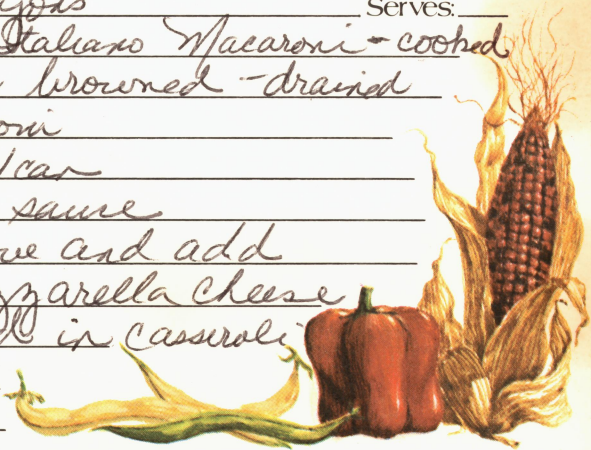 Serves:
Italiano Macaroni - cooked
browned - drained
oni
1 can
sauce
ve and add
zzarella cheese
in casserole